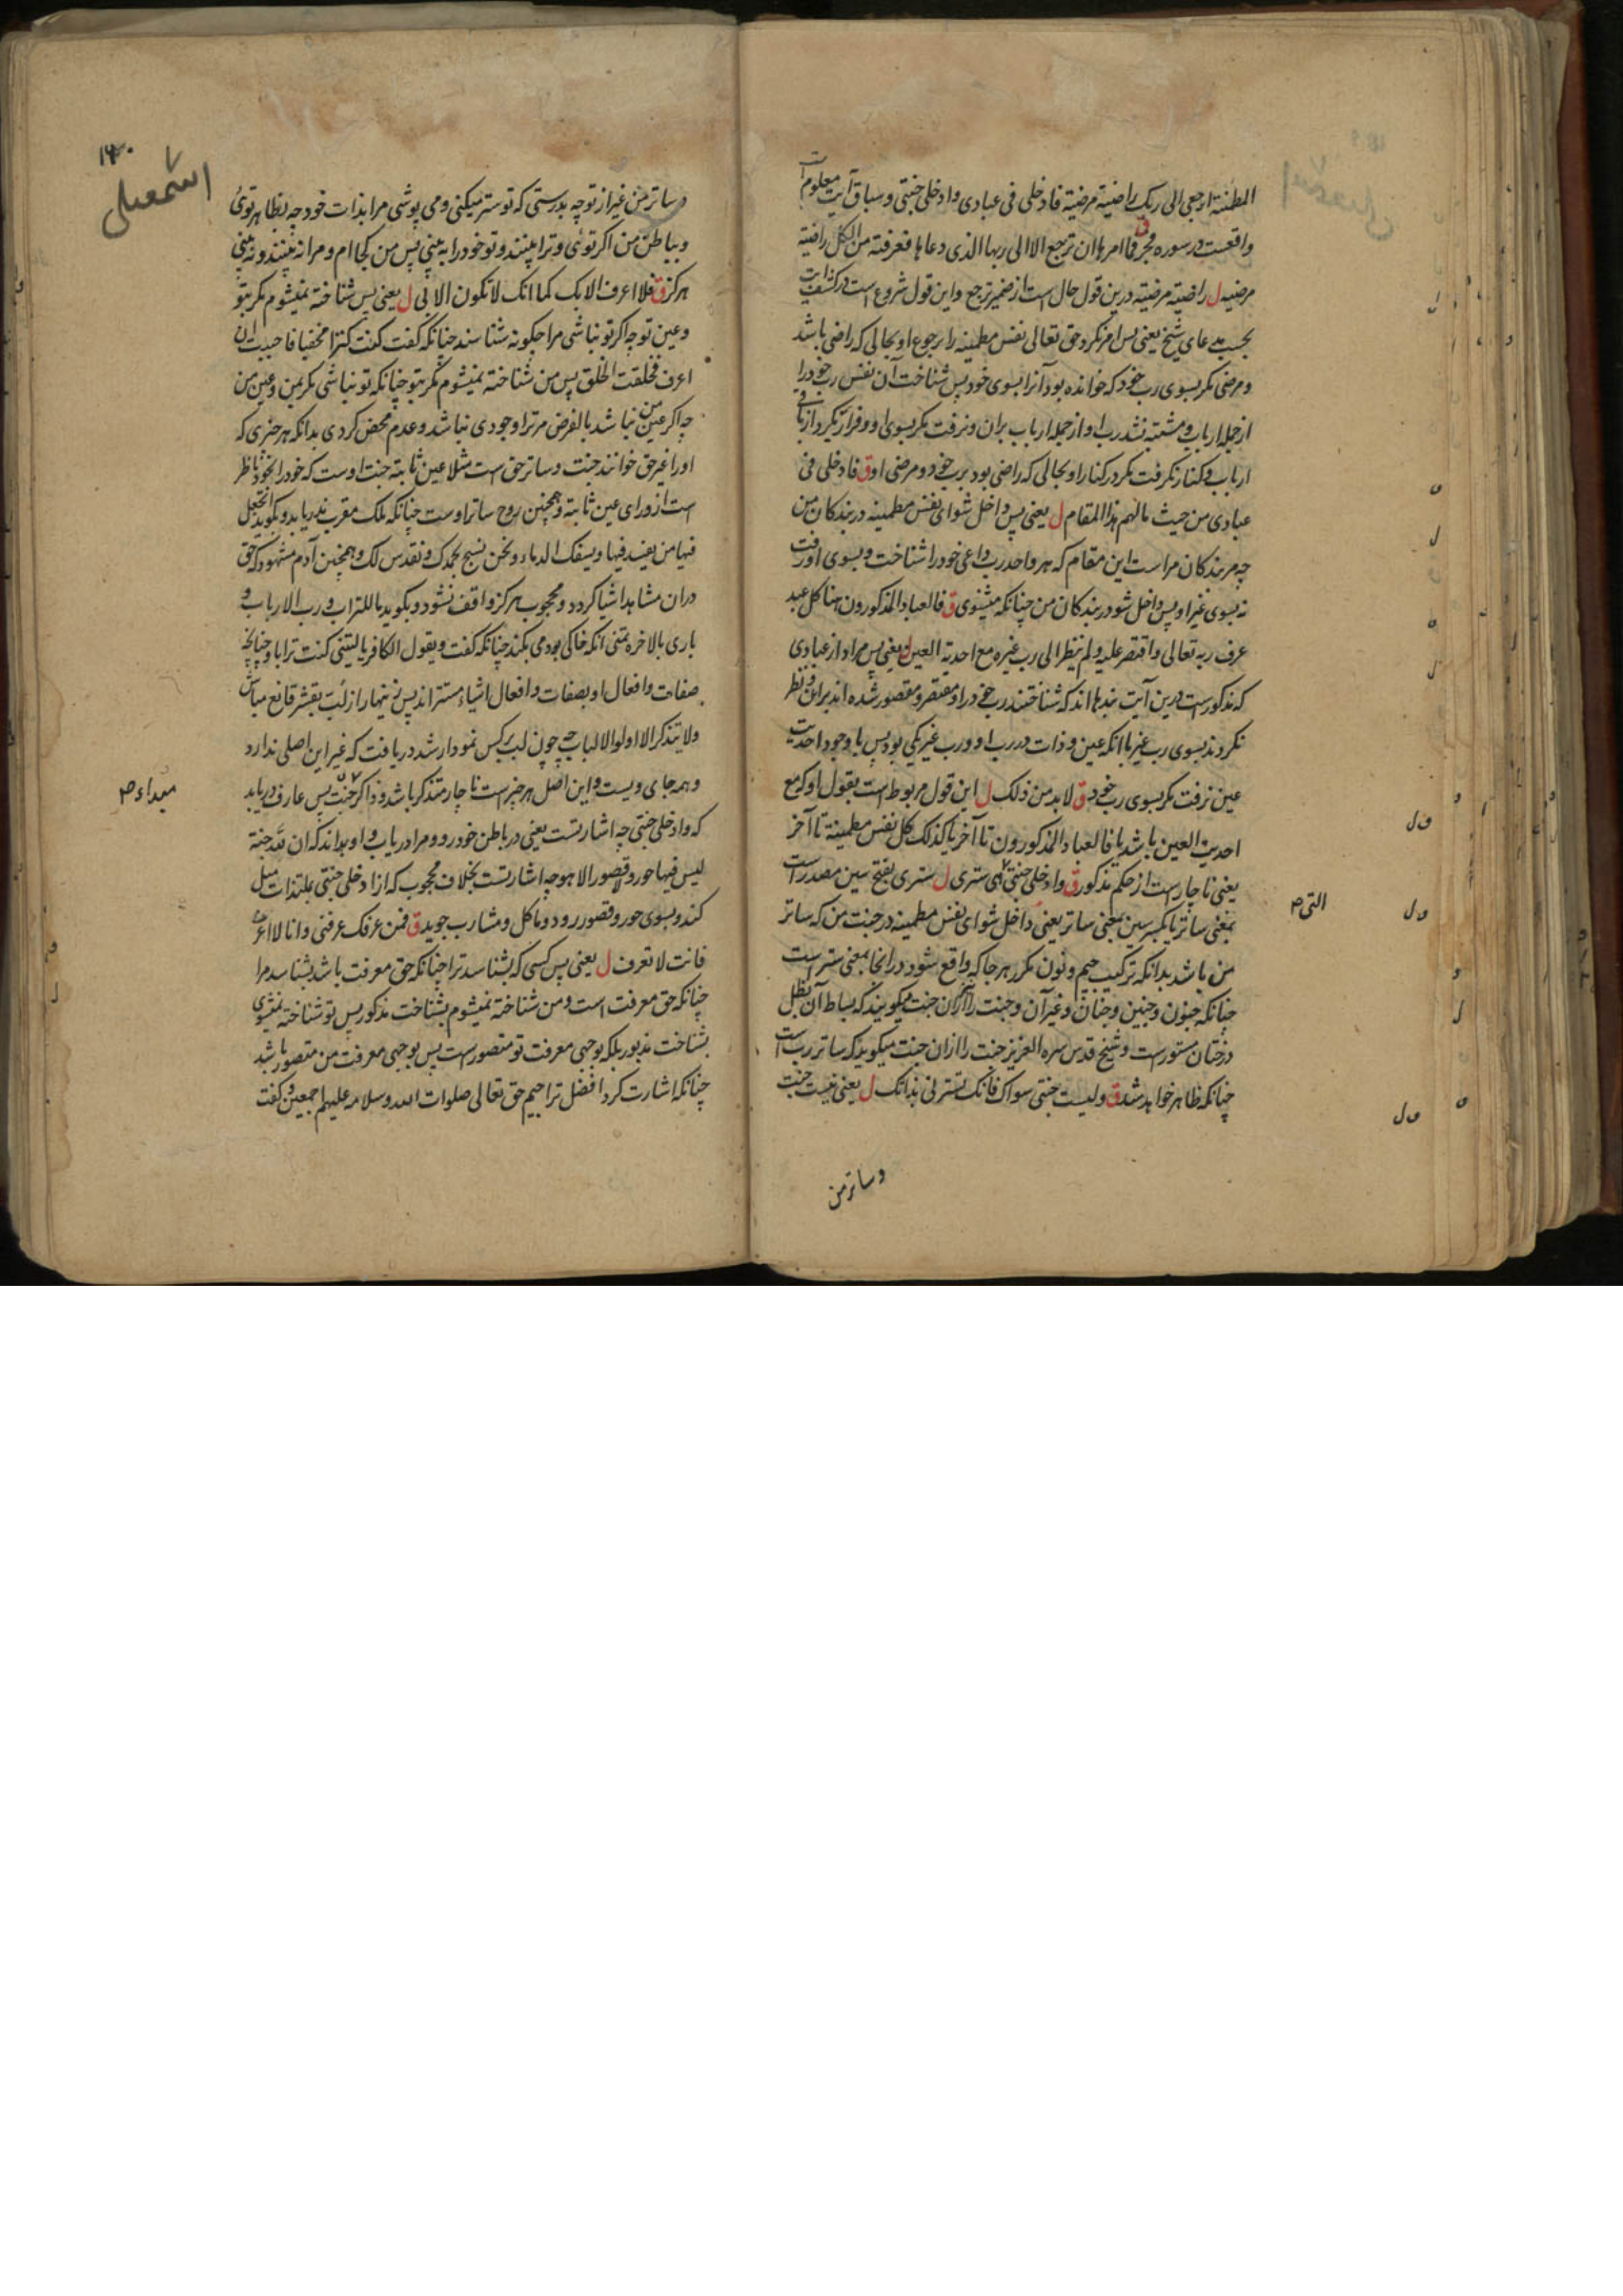 المطئنة ارجعی الی ربک راضیة مرضیة فادخلی فی عبادی وادخلی جنتی و سباق آیت معلوم است
واقعست در سوره فجر ق فما امرها ان ترجع الا الی ربها الذی دعاها فعرفته من الکل راضیة
مرضیه ل راضیة مرضیة درین قول حال است از ضمیر ترجع و این قول شروع است در کشف آیت
بحسب مدعای شیخ یعنی پس امر نکرد حق تعالی نفس مطمینه را رجوع او بحالی که راضی باشد
و مرضی مکر بسوی رب خود که خوانده بود آنرا بسوی خود پس شناخت آن نفس رب خود را
از جمله ارباب و مشتبه نشد رب او از جمله ارباب بران و نرفت مکر بسوی او و فرار نکرد از
ارباب و کنار نکرفت مکر در کنار او بحالی که راضی بود برب خود و مرضی او ق فادخلی فی
عبادی من حیث مالهم هذا المقام ل یعنی پس داخل شو ای نفس مطمینه در بندکان من
چه مر بندکان مراست این مقام که هر واحد رب داعی خود را شناخت و بسوی او رفت
نه بسوی غیر او پس داخل شو در بندکان من چنانکه میشنوی ق فالعباد المذکورون هنا کل عبد
عرف ربه تعالی و اقتصر علیه و لم ینظر الی رب غیره مع احدیة العین ل یعنی پس مراد از عبادی
که مذکور است درین آیت بندها اند که شناختند رب خود را و مقتصر و مقصور شده اند بران و نظر
نکردند بسوی رب غیر با آنکه عین و ذات در رب او و رب غیر یکی بود پس با وجود احدیت
عین نرفت مکر بسوی رب خود ق لابد من ذلک ل این قول مربوط است بقول او که مع
احدیة العین باشد یا فالعباد المذکورون تا آخر یا کذلک کل نفس مطمینة تا آخر
یعنی ناچار است از حکم مذکور ق وادخلی جنتی الّتی هی ستری ل ستری بفتح سین مصدر است
بمعنی ساتر یا بکسر سین بمعنی ساتر یعنی داخل شو ای نفس مطمینه در جنت من که ساتر
من باشد بدانکه ترکیب جیم و نون مکرر هر جا که واقع شود در انجا بمعنی ستر است
چنانکه جنون و جنین و جنان و غیر آن و جنت را از ان جنت میکویند که بساط آن بظل
درختان مستور است و شیخ قدس سره العزیز جنت را ازان جنت میکوید که ساتر رب است
چنانکه ظاهر خواهد شد ق و لیست جنتی سواک فانک تسترنی بذاتک ل یعنی نیست جنت
و ساتر من
اسمعیلی
۱۴۰
و ساتر من غیر از تو چه بدرستی که تو ستر میکنی و می پوشی مرا بذات خود چه بظاهر توئی
و بباطن من اکر توئی و ترا بینند و تو خود را به بینی پس من کجا ام و مرا نه بینند و نه بینی
هرکز ق فلا اعرف الا بک کما انک لا تکون الا بی ل یعنی پس شناخته نمیشوم مکر بتو
و عین تو چه اکر تو نباشی مرا چکونه شناسند چنانکه کفت کنت کنزا مخفیا فاحببت ان
اعرف فخلقت الخلق پس من شناخته نمیشوم مکر بتو چنانکه تو نباشی مکر بمن و عین من
چه اکر عین من نباشد بالفرض مر ترا وجودی نباشد و عدم محض کردی بدانکه هر چیزی که
او را غیر حق خوانند جنت و ساتر حق است مثلا عین ثابته جنت اوست که خود را بخود ناظر
است از ورای عین ثابته و همچنین روح ساتر اوست چنانکه ملک مقرب ندریابد و بکوید اتجعل
فیها من یفسد فیها و یسفک الدماء و نحن نسبح بحمدک و نقدس لک و همچنین آدم مشهود که حق
دران مشاهد اشیا کردد و محجوب هرکز واقف نشود و بکوید ما للتراب و رب الارباب و
باری بالاخره تمنی آنکه خاکی بودمی بکند چنانکه کفت و یقول الکافر یا لیتنی کنت ترابا و چنانچه
صفات و افعال او بصفات و افعال اشیاء مستتر اند پس زینهار از لب بقشر قانع مباش
و لا یتذکر الا اولوا الالباب چه چون لب بر کس نمودار شد دریافت که غیر این اصلی ندارد
و همه جای ویست و این اصل هر چیز است ناچار متذکر باشد و ذاکر جنت پس عارف دریابد
که وادخلی جنتی چه اشارتست یعنی در باطن خود رو و مرا دریاب و او بداند که ان لله جنة
لیس فیها حور و لا قصور الا هو چه اشارتست بخلاف محجوب که از ادخلی جنتی بلتذات میل
کند و بسوی حور و قصور رود و ماکل و مشارب جوید ق فمن عرفک عرفنی و انا لا اعرف
فانت لا تعرف ل یعنی پس کسی که بشناسد ترا چنانکه حق معرفت باشد بشناسد مرا
چنانکه حق معرفت است و من شناخته نمیشوم بشناخت مذکور پس تو شناخته نمیشوی
بشناخت مذبور بلکه بوجهی معرفت تو متصور است پس بوجهی معرفت من متصور باشد
چنانکه اشارت کرد افضل تراجیم حق تعالی صلوات الله و سلامه علیهم اجمعین و کفت